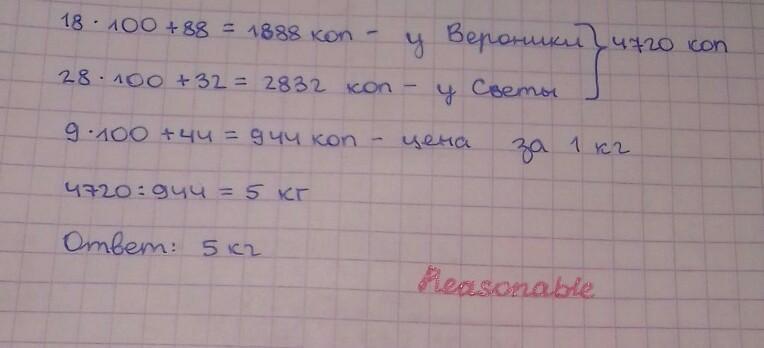 18 · 100 + 88 = 1888 коп - у Вероники } 4720 коп
28 · 100 + 32 = 2832 коп - у Светы
9 · 100 + 44 = 944 коп - цена за 1 кг
4720 : 944 = 5 кг
Ответ: 5 кг
Reasonable